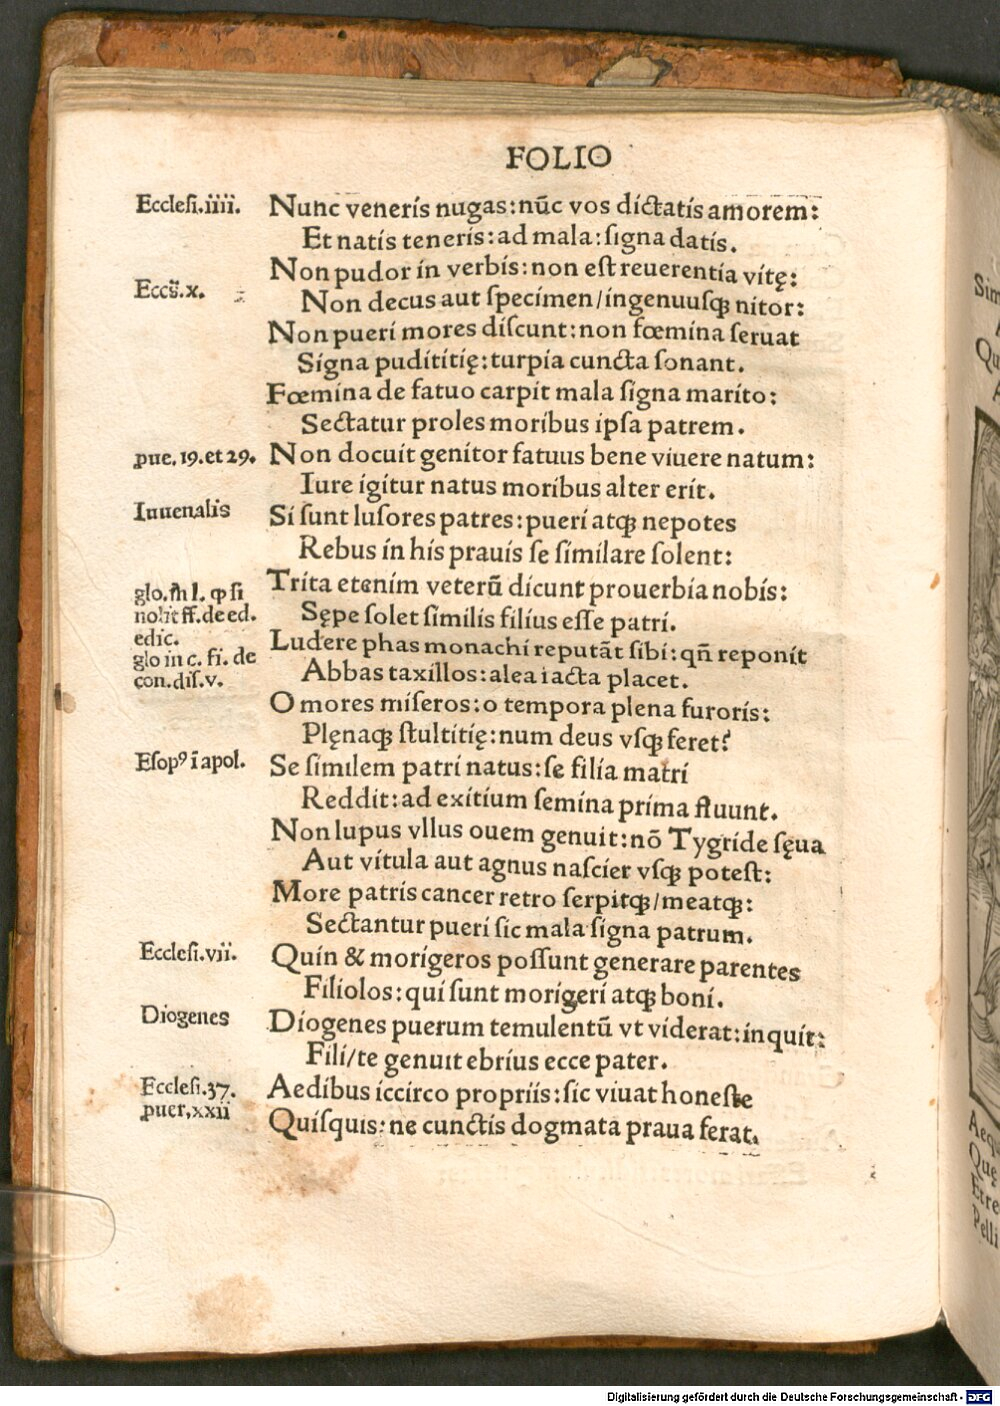 FOLIO
Ecclesi.iiii.
Nunc veneris nugas:nūc vos dictatis amorem:
Et natis teneris:ad mala:signa datis.
Non pudor in verbis:non est reuerentia vitę:
Eccs̄.x.
Non decus aut specimen/ingenuusqꝫ nitor:
Non pueri mores discunt:non fœmina seruat
Signa pudititię:turpia cuncta sonant.
Fœmina de fatuo carpit mala signa marito:
Sectatur proles moribus ipsa patrem.
ꝓue.19.et 29.
Non docuit genitor fatuus bene viuere natum:
Iure igitur natus moribus alter erit.
Iuuenalis
Si sunt lusores patres:pueri atqꝫ nepotes
Rebus in his prauis se similare solent:
Trita etenim veterū dicunt prouerbia nobis:
glo. l. ꝙ si
nolit ff.de ed.
edic.
Sępe solet similis filius esse patri.
Ludere phas monachi reputāt sibi:qn̄ reponit
glo in c. fi. de
con.dis.v.
Abbas taxillos:alea iacta placet.
O mores miseros:o tempora plena furoris:
Plęnaqꝫ stultitię:num deus vsqꝫ feret?
Esopꝰ ī apol.
Se similem patri natus:se filia matri
Reddit:ad exitium semina prima fluunt.
Non lupus vllus ouem genuit:nō Tygride sęua
Aut vitula aut agnus nascier vsqꝫ potest:
More patris cancer retro serpitqꝫ/meatqꝫ:
Sectantur pueri sic mala signa patrum.
Ecclesi.vii.
Quin & morigeros possunt generare parentes
Filiolos:qui sunt morigeri atqꝫ boni.
Diogenes
Diogenes puerum temulentū vt viderat:inquit:
Fili/te genuit ebrius ecce pater.
Ecclesi.37.
Aedibus iccirco propriis:sic viuat honeste
ꝓuer,xxii
Quisquis:ne cunctis dogmata praua ferat.
Sim
Qu
Aequ
Quę
Et re
Pelli
Digitalisierung gefördert durch die Deutsche Forschungsgemeinschaft - DFG